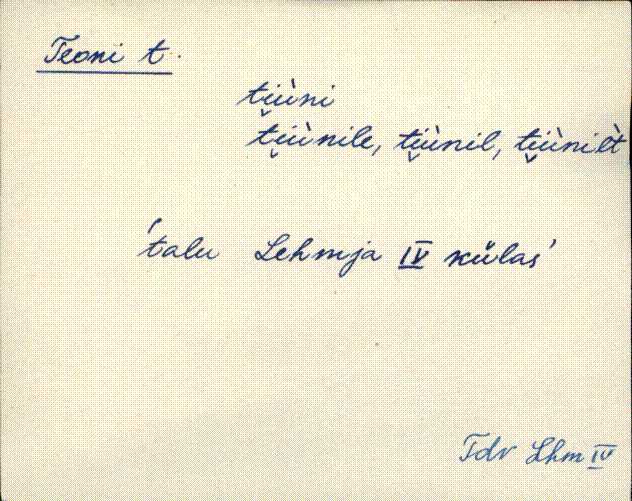 Teoni t.
ti̬ùni
ti̬ùnile, ti̬ùnil, ti̬ùnilt̀
'talu Lehmja IV külas'
Tdv Lhm IV